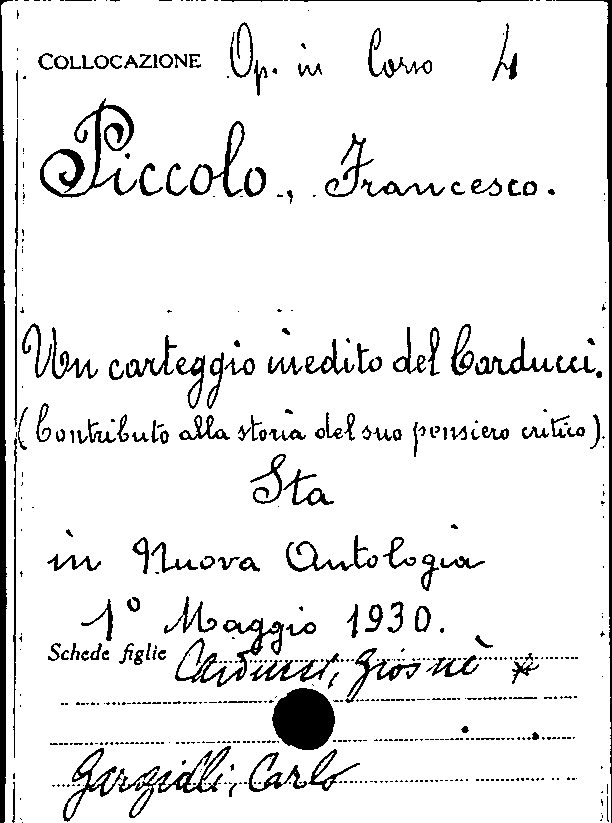 COLLOCAZIONE Op. in Corso 4
Piccolo, Francesco.
Un carteggio inedito del Carducci.
(Contributo alla storia del suo pensiero critico)
Sta
in Nuova Antologia
1° Maggio 1930.
Schede figlie Carducci, Giosuè *
Gargiolli, Carlo